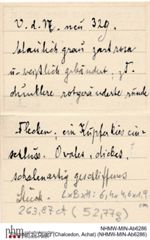 V. d. N. neu 329.
bläulich grau zart rosa
u. weißlich gebändert, z. T.
dunklere rotgeränderte runde
Flecken, ein Kupferkies ein-
schluss. Ovales, dickes,
schalenartig geschliffenes
Stück. LxBxH: 6,4x4,6x1,9 cm
263,87ct (52,77g)
NHMW-MIN-Ab6286
(Chalcedon, Achat) (NHMW-MIN-Ab6286)